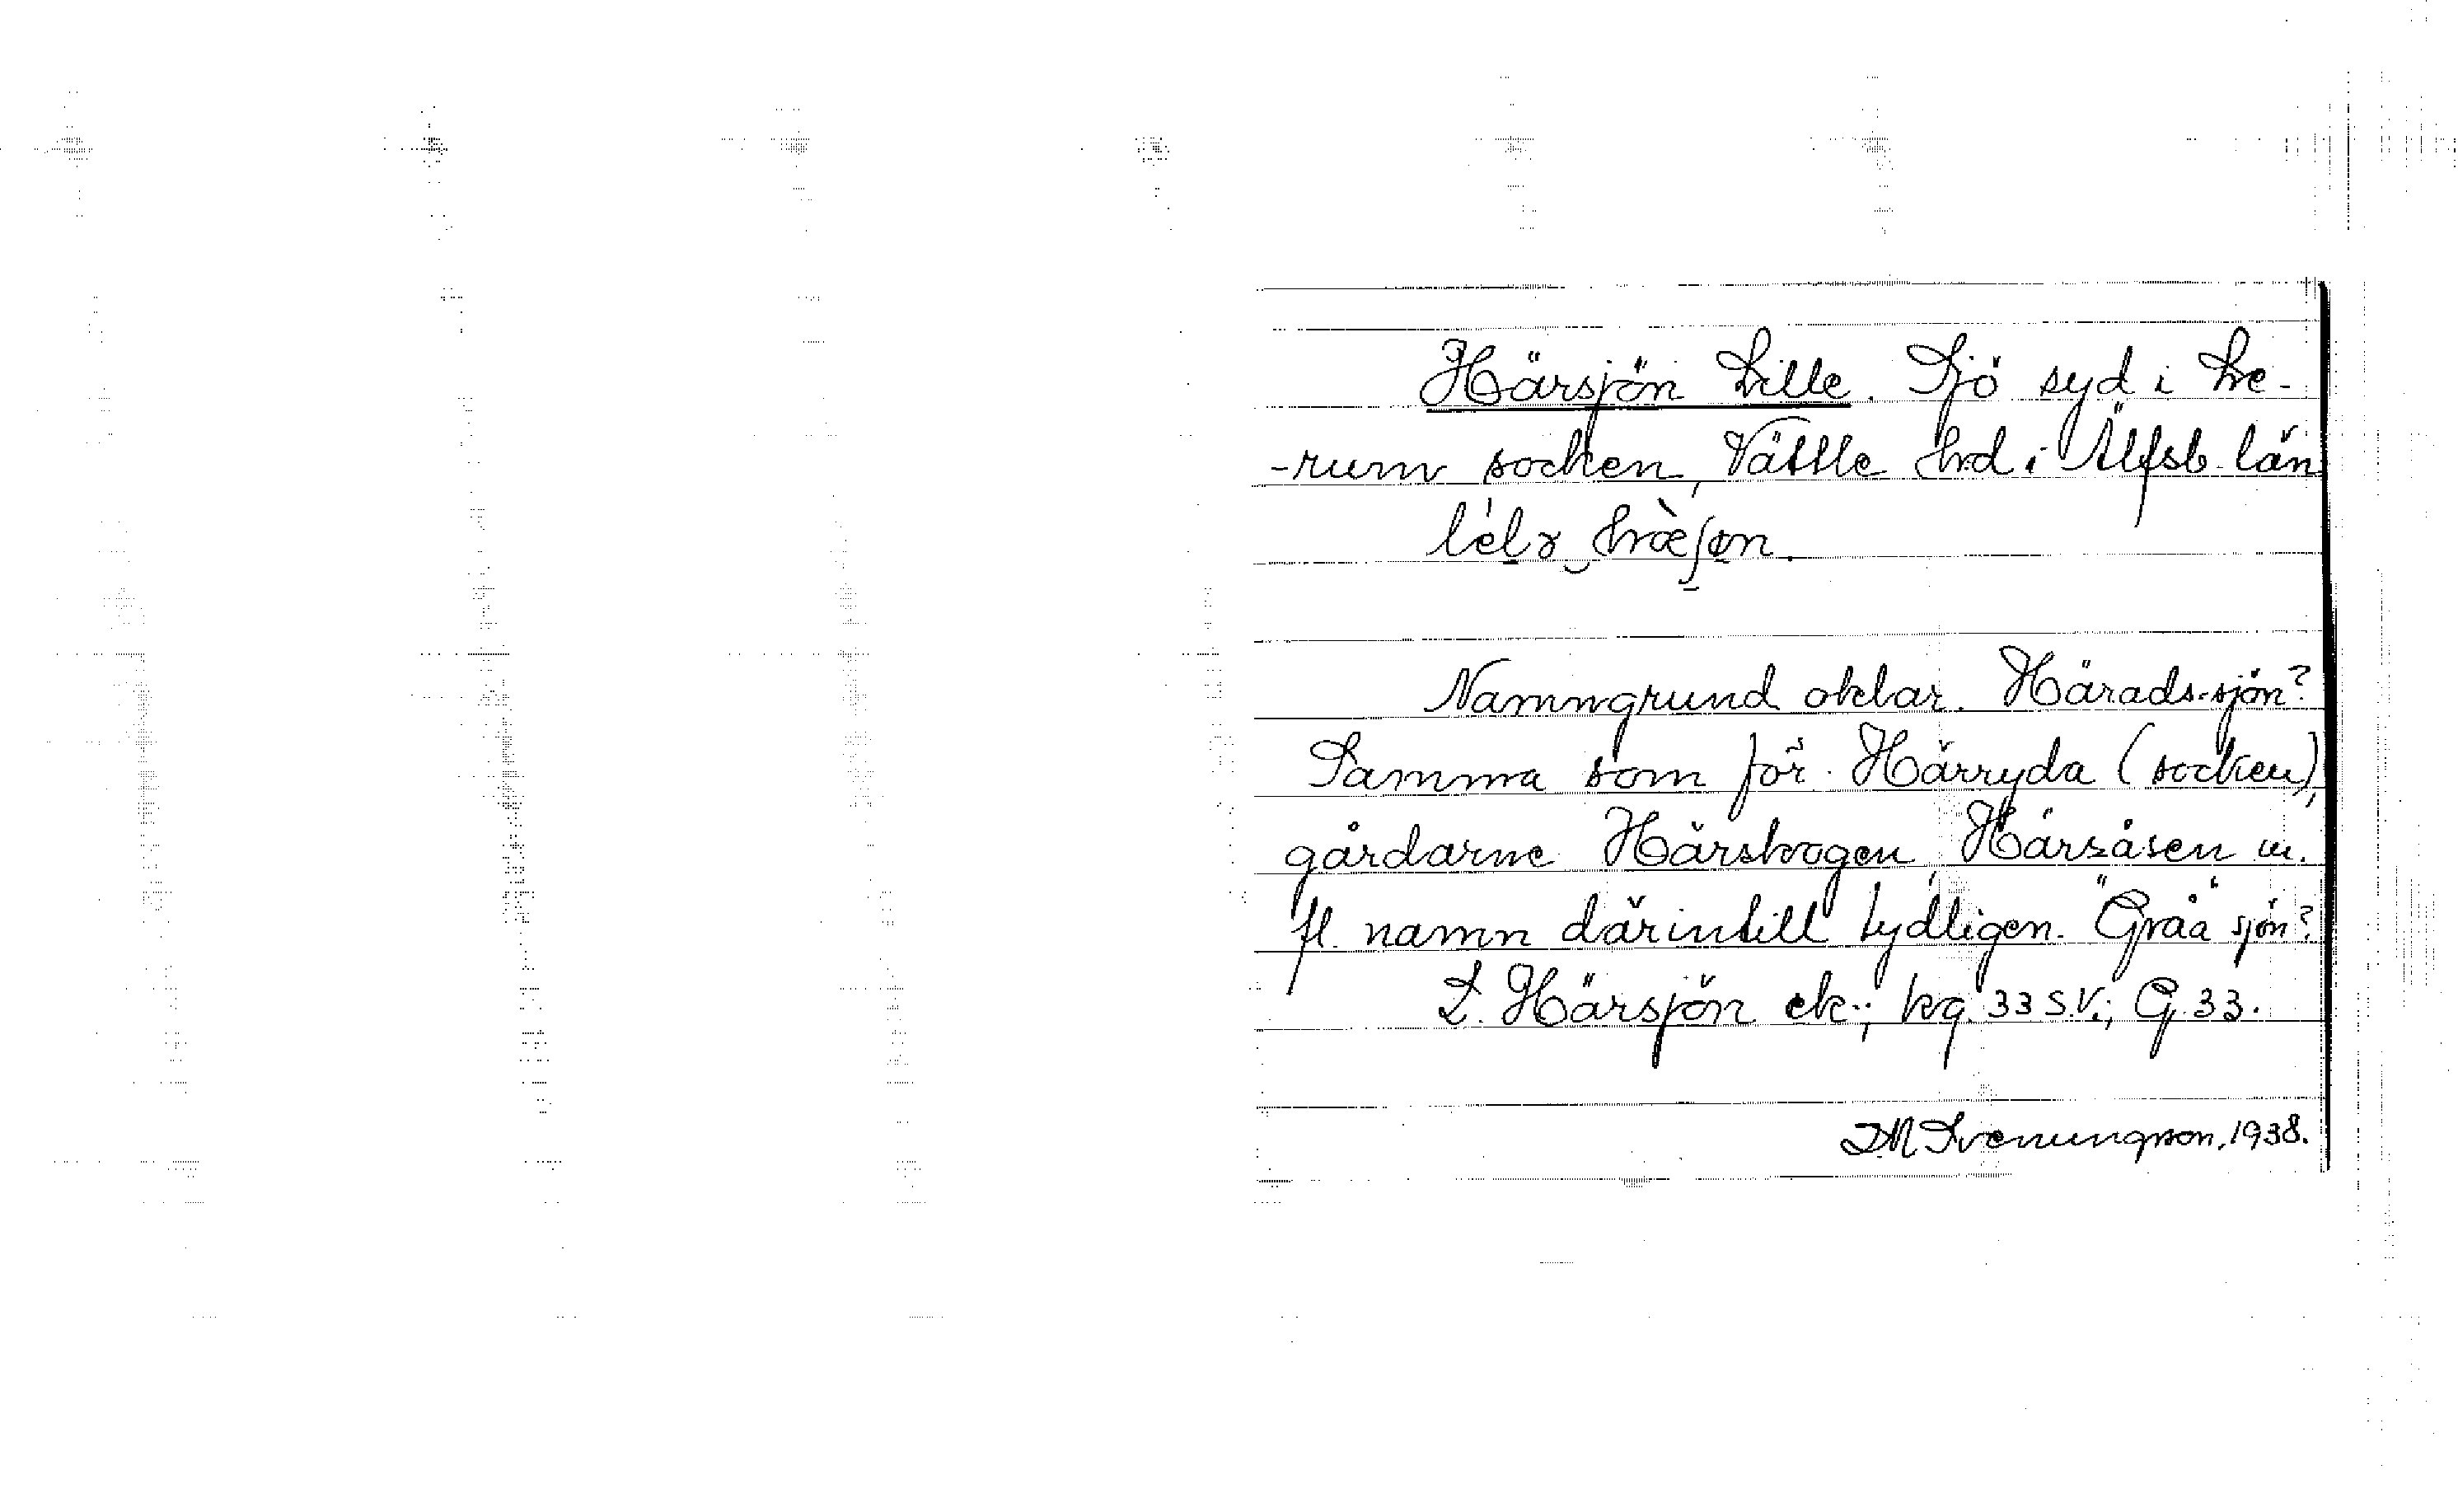 Härsjön Lille. Sjö syd i Le-
-rum socken, Vättle hrd i Älfsb. län
Namngrund oklar. Härads-sjön?
Samma som för Härryda (socken),
gårdarne Härskogen, Härsåsen m.
fl. namn därintill tydligen. "Gråa" sjön?
L. Härsjön ek.; kg. 33 S.V.; G 33.
IM Svenungson, 1938.